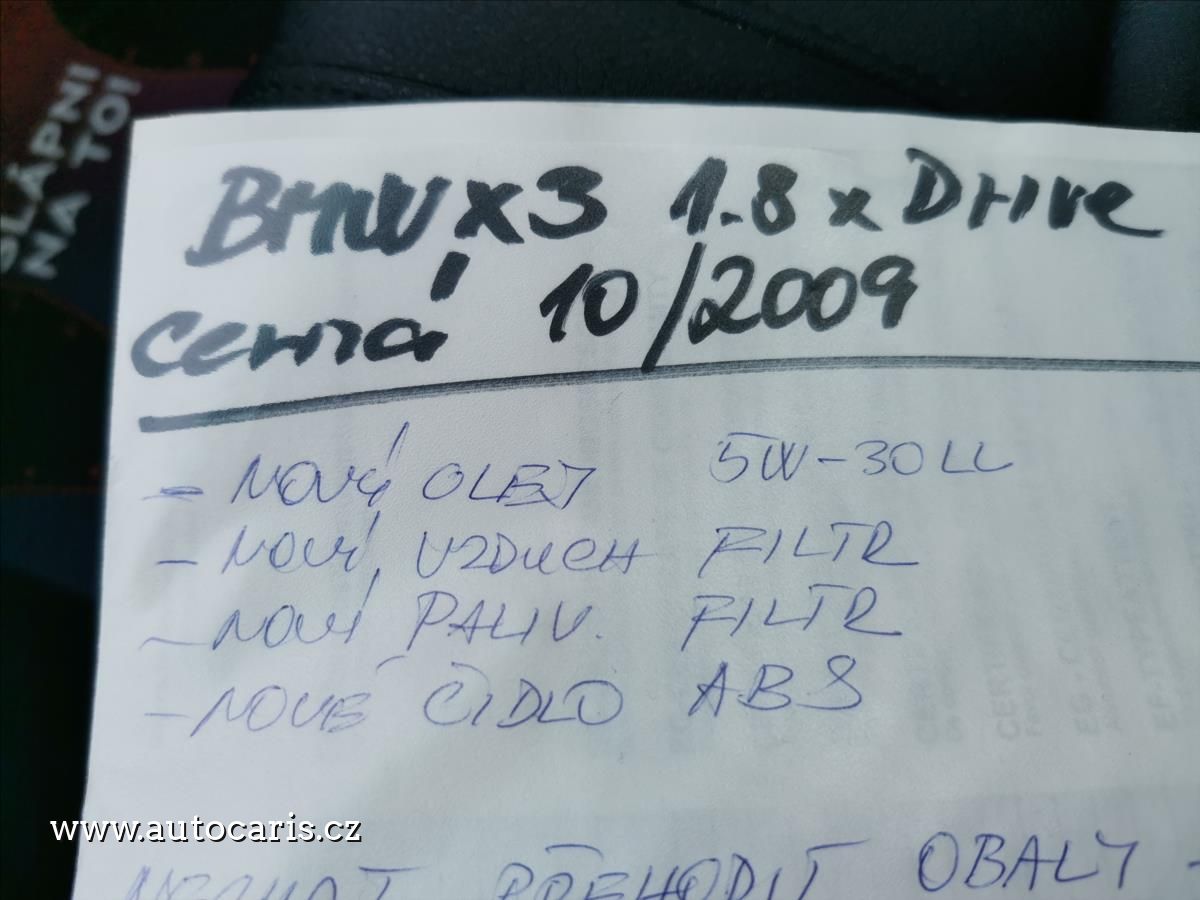 ŠLÁPNI
NA TO!
BMW X3 1.8 x Drive
Černá 10/2009
- NOVÝ OLEJ 5W-30LL
- NOVÝ VZDUCH FILTR
- NOVÝ PALIV. FILTR
- NOVÉ ČIDLO ABS
NECHAT PŘEHODIT OBALY -
www.autocaris.cz